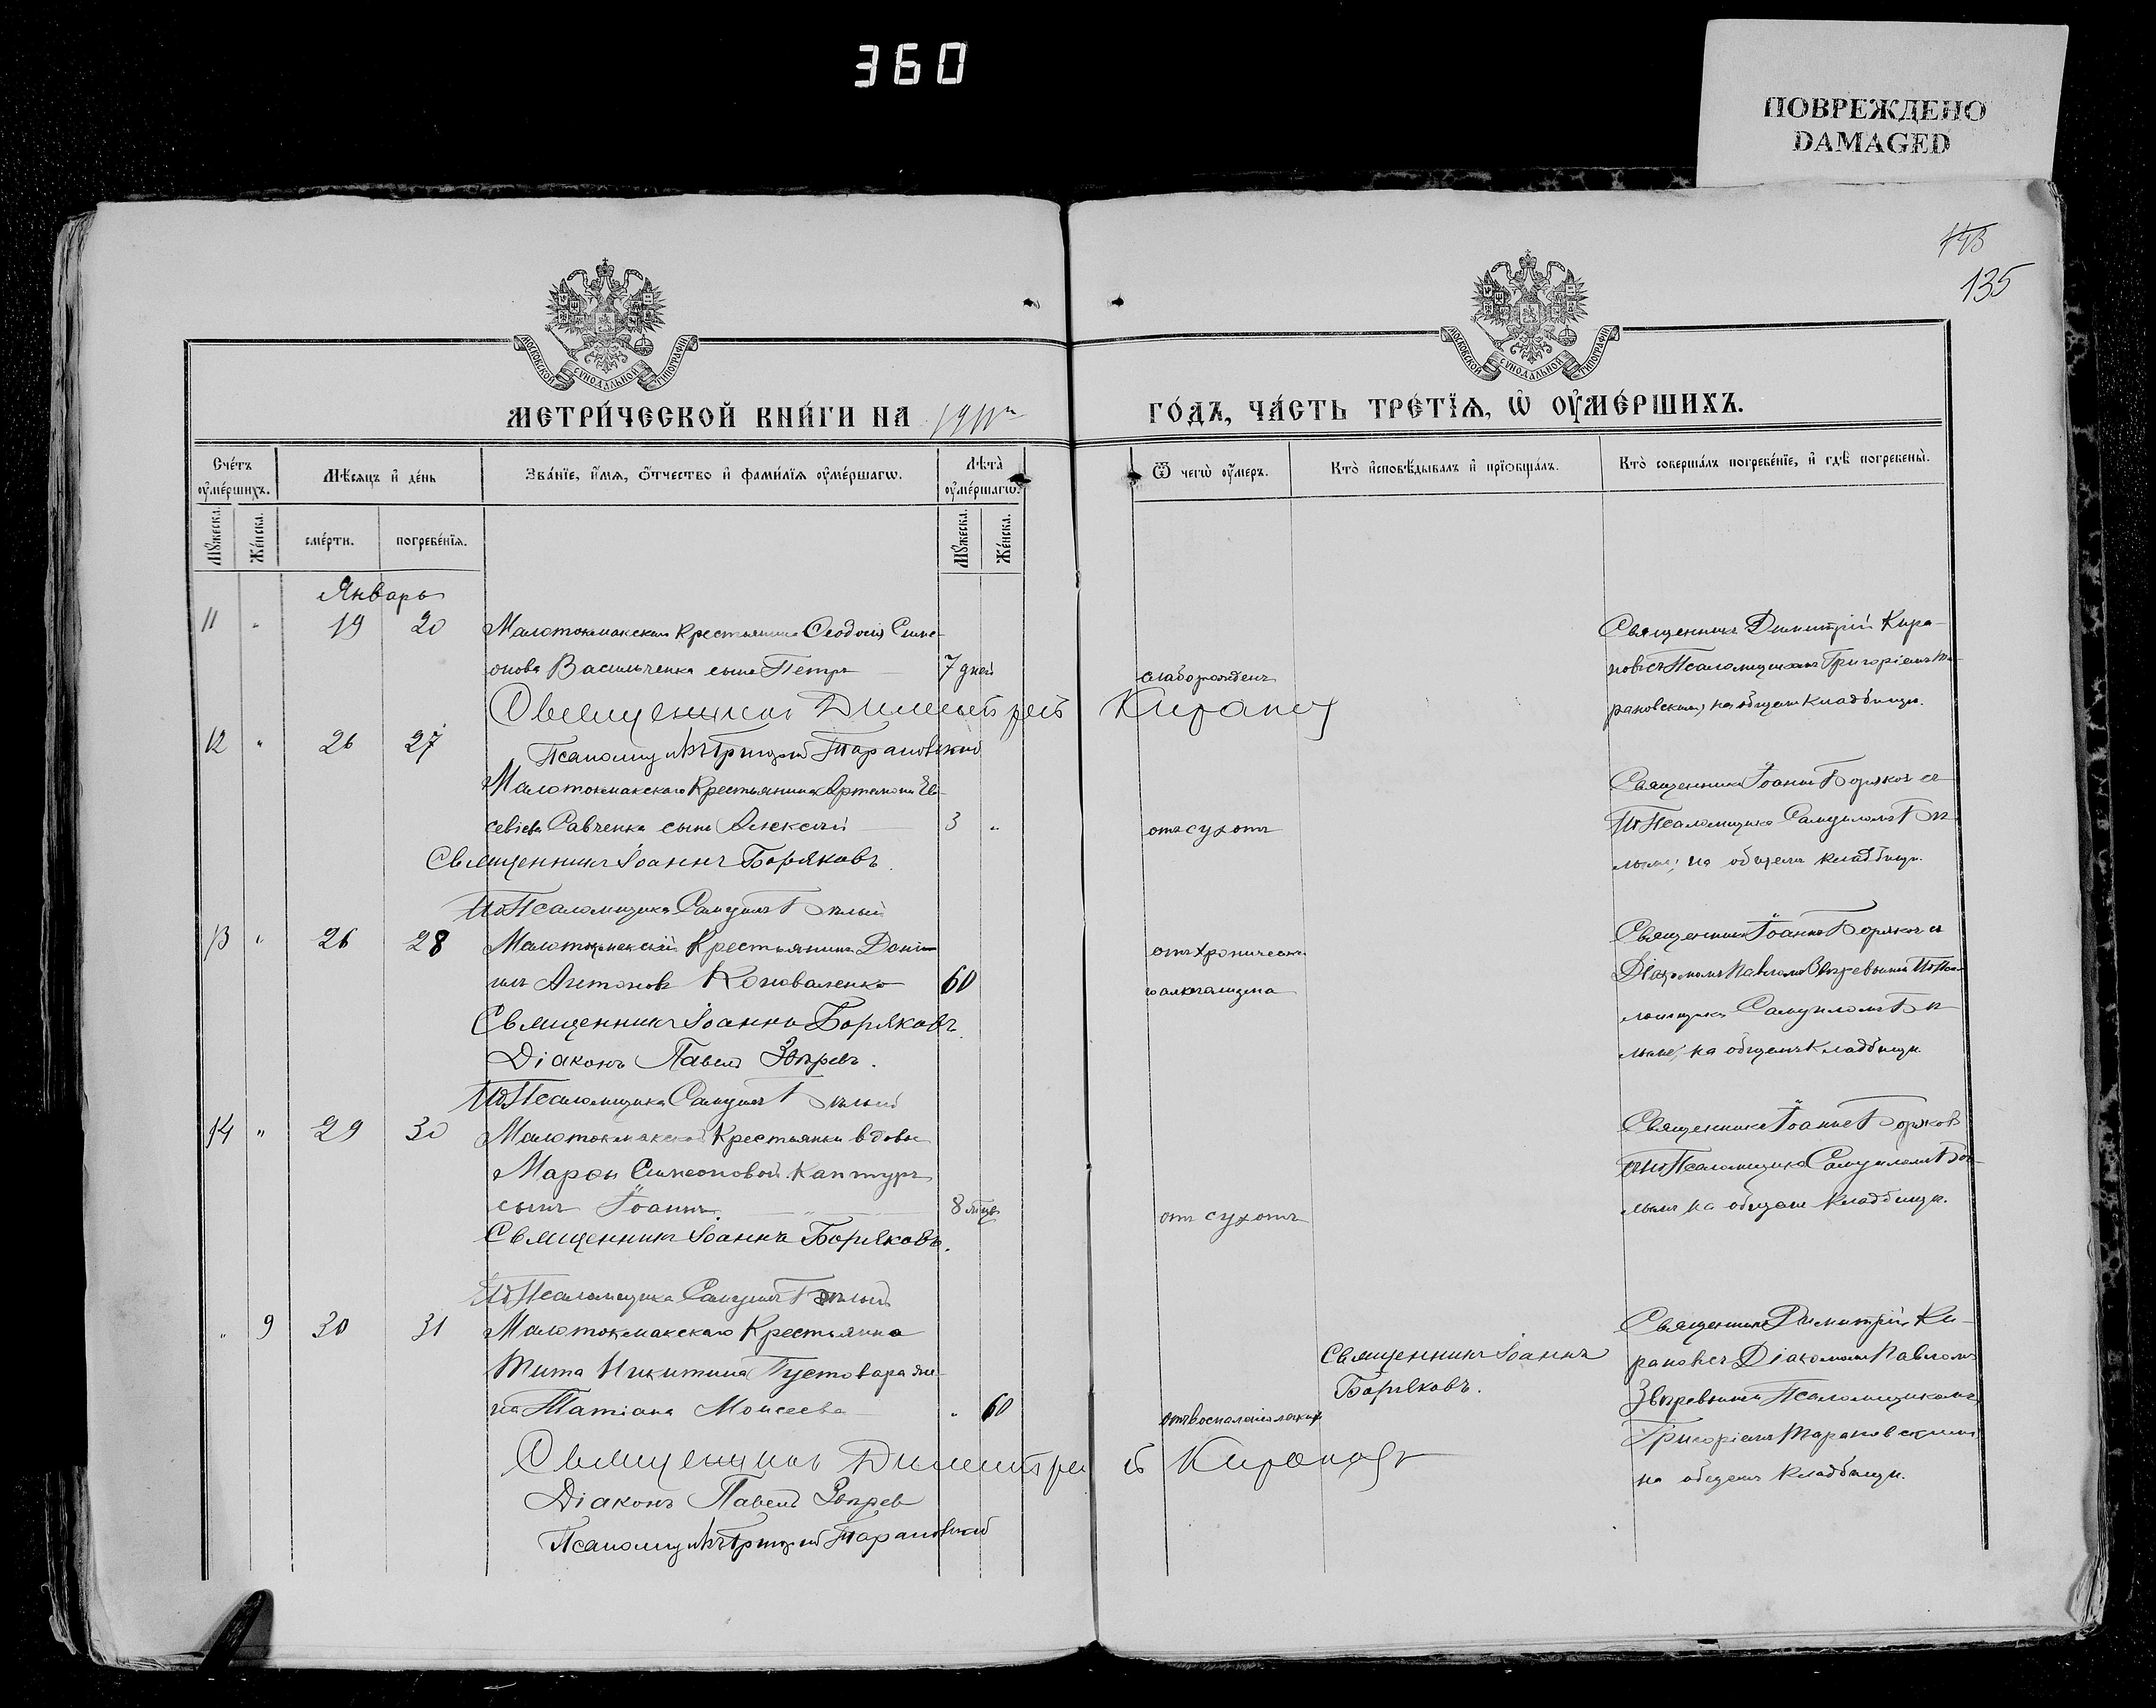 360
ПОВРЕЖДЕНО
DAMAGED
143
135
МОСКОВСКОЙ СУНОДАЛЬНОЙ ТИПОГРАФІИ
МОСКОВСКОЙ СУНОДАЛЬНОЙ ТИПОГРАФІИ
МЕТРИ́ЧЕСКОЙ КНИ́ГИ НА 1911
ГО́ДЪ, ЧА́СТЬ ТРЕ́ТЇѦ, Ѡ҆ ОУ҆МЕ́РШИХЪ.
Сче́тъ оу҆ме́ршихъ.
Мѣ́сѧцъ и҆ де́нь
Зва́нїе, и҆́мѧ, ѻ҆́тчество и҆ фами́лїѧ оу҆ме́ршагѡ.
Лѣ́та оу҆ме́ршагѡ.
Ѿ чегѡ̀ оу҆́меръ.
Кто̀ и҆сповѣ́дывалъ и҆ прїѡбща́лъ.
Кто̀ соверша́лъ погребе́нїе, и҆ гдѣ̀ погребены̀.
Мꙋ́жеска.
Же́нска.
сме́рти.
погребе́нїѧ.
Мꙋ́жеска.
Же́нска.
Январь
11 " 19 20 Малотокмакскаго Крестьянина Ѳеодосія Симе-
онова Васильченка сынъ Петръ 7 дней
слаборожденъ
Священникъ Димитрій Кира-
новъ съ Псаломщикомъ Григоріемъ Та-
рановскимъ, на общемъ кладбищѣ.
Священникъ Димитрій Кирановъ
Псаломщикъ Григорій Тарановскій
12 " 26 27
Малотокмакскаго Крестьянина Артемона Ев-
севіева Савченка сынъ Алексѣй 3 "
отъ сухотъ
Священникъ Іоаннъ Боряковъ съ
ИдПсаломщика Самуиломъ Бѣ-
лымъ, на общемъ кладбищѣ.
Священникъ Іоаннъ Боряковъ.
ИдПсаломщика Самуилъ Бѣлый
13 " 26 28 Малотокмакскій Крестьянинъ Дані-
илъ Антоновъ Коноваленко 60
отъ хроническа-
го алкоголизма
Священникъ Іоаннъ Боряковъ съ
Діакономъ Павломъ Звѣревымъ ИдПса-
ломщика Самуиломъ Бѣ-
лымъ, на общемъ кладбищѣ.
Священникъ Іоаннъ Боряковъ.
Діаконъ Павелъ Звѣревъ.
ИдПсаломщика Самуилъ Бѣлый
14 " 29 30 Малотокмакской Крестьянки вдовы
Марѳы Симеоновой Каптуръ
сынъ Іоаннъ. 8 мѣсяц.
отъ сухотъ
Священникъ Іоаннъ Боряковъ
съ ИдПсаломщика Самуиломъ Бѣ-
лымъ на общемъ кладбищѣ.
Священникъ Іоаннъ Боряковъ.
ИдПсаломщика Самуилъ Бѣлый
" 9 30 31 Малотокмакскаго Крестьянина
Тита Никитина Пустовара же-
на Татіана Моисеева " 60
отъ воспаленія легкихъ
Священникъ Іоаннъ
Боряковъ.
Священникъ Димитрій Ки-
рановъ съ Діакономъ Павломъ
Звѣревымъ и Псаломщикомъ
Григоріемъ Тарановскимъ
на общемъ кладбищѣ.
Священникъ Димитрій Кирановъ
Діаконъ Павелъ Звѣрев
Псаломщикъ Григорій Тарановскій